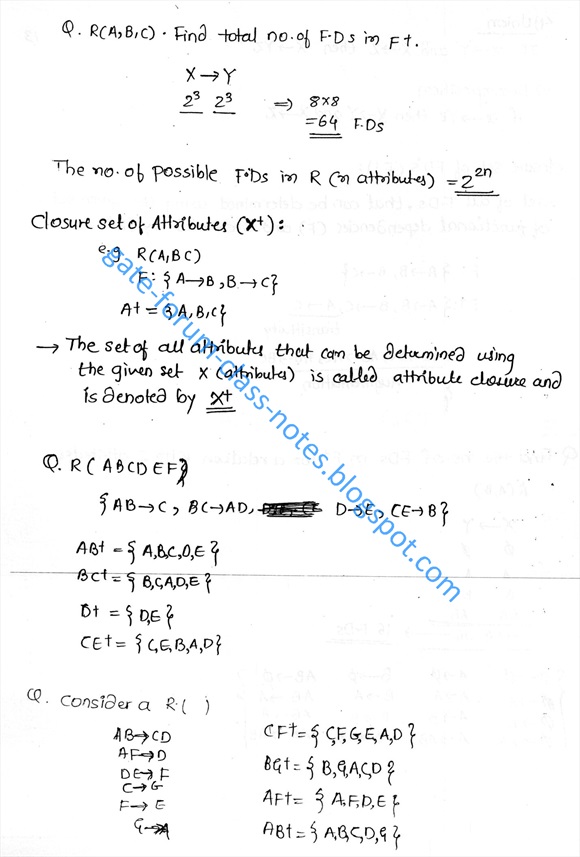 Q. R(A,B,C). Find total no. of F.Ds in F+.
X→Y
2³ 2³ ⇒ 8×8
=64 F.Ds
The no. of possible F.Ds in R (n attributes) = 2²ⁿ
Closure set of Attributes (X+):
e.g R(A,BC)
F: {A→B, B→C}
A+ = {A,B,C}
→ The set of all attributes that can be determined using
the given set X (attributes) is called attribute closure and
is denoted by X+
Q. R( ABCDEF)
{AB→C, BC→AD, D→E, CE→B}
AB+ = {A,B,C,D,E}
BC+ = {B,C,A,D,E}
D+ = {D,E}
CE+ = {C,E,B,A,D}
Q. Consider a R.( )
AB→CD
AF→D
DE→F
C→G
F→E
G→A
CF+ = {C,F,G,E,A,D}
BG+ = {B,G,A,C,D}
AF+ = {A,F,D,E}
AB+ = {A,B,C,D,G}
gate-forum-class-notes.blogspot.com